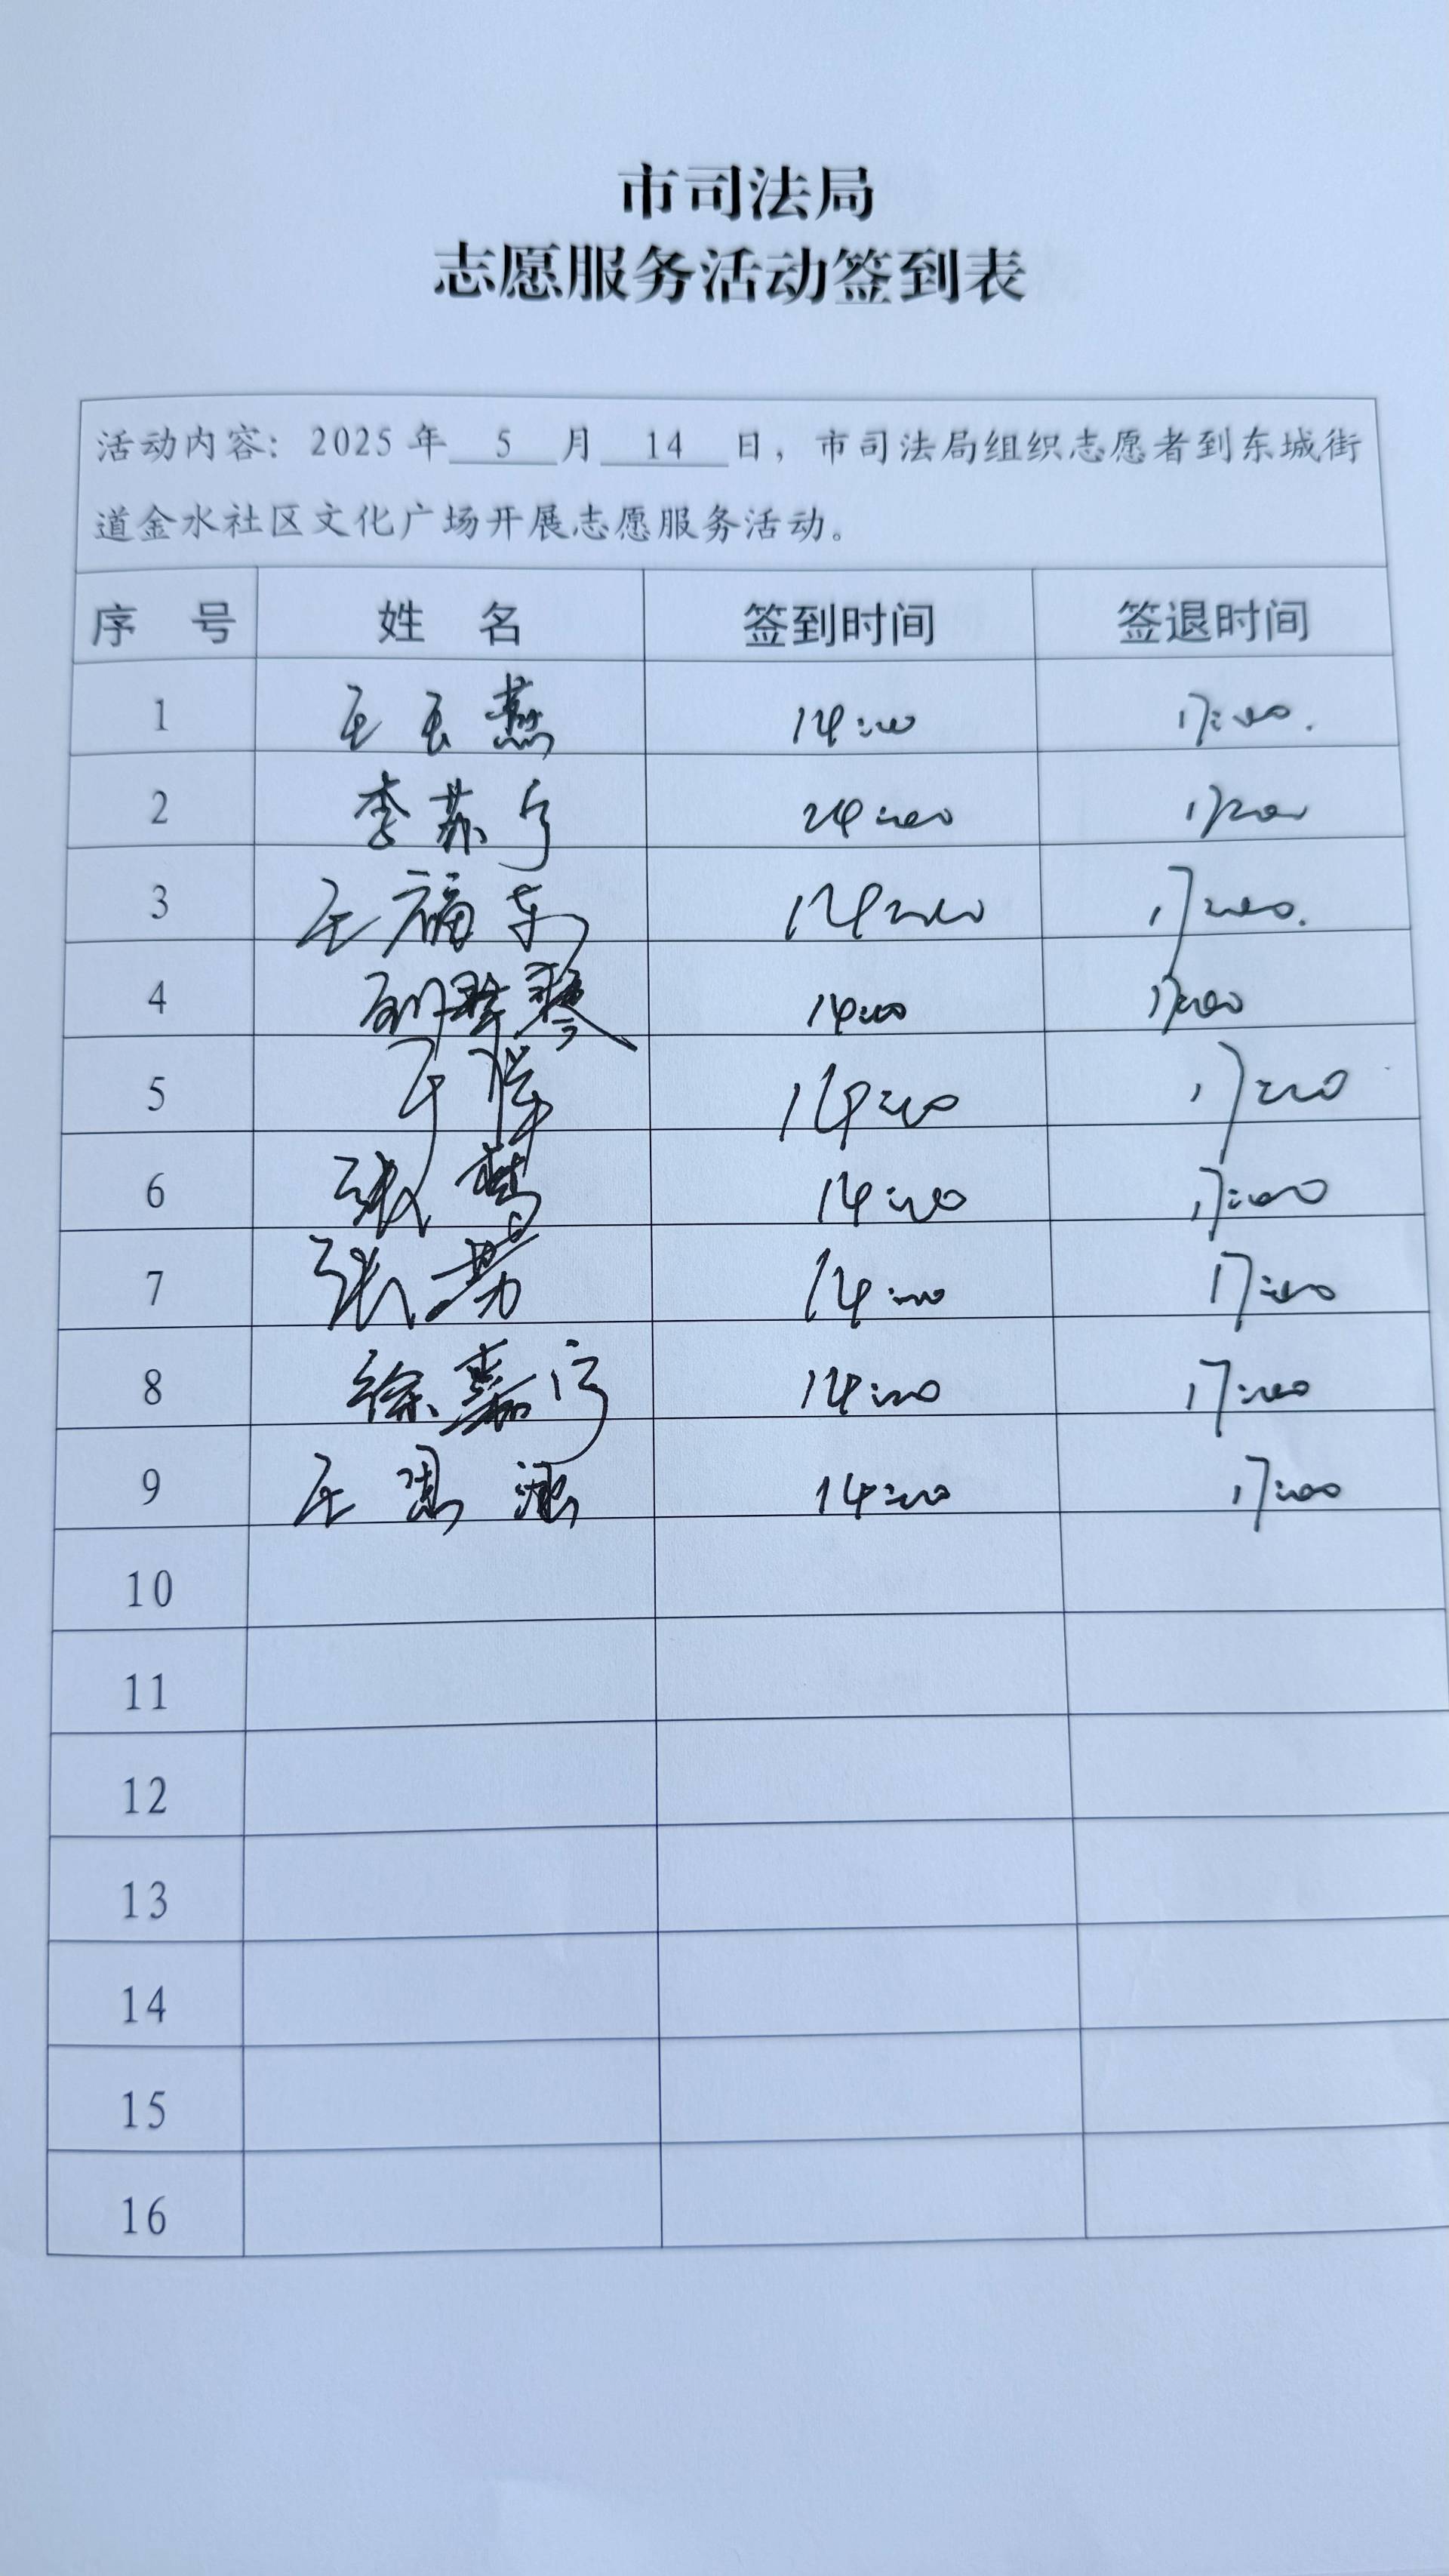 市司法局
志愿服务活动签到表
活动内容：2025年 5 月 14 日，市司法局组织志愿者到东城街
道金水社区文化广场开展志愿服务活动。
序 号 姓 名 签到时间 签退时间
1 王玉燕 14:00 17:00.
2 李苏宁 14:00 17:00
3 王福东 14:00 17:00.
4 14:00 17:00
5 于 14:00 17:00
6 张 14:00 17:00
7 张 14:00 17:00
8 徐嘉宁 14:00 17:00
9 王思涵 14:00 17:00
10
11
12
13
14
15
16